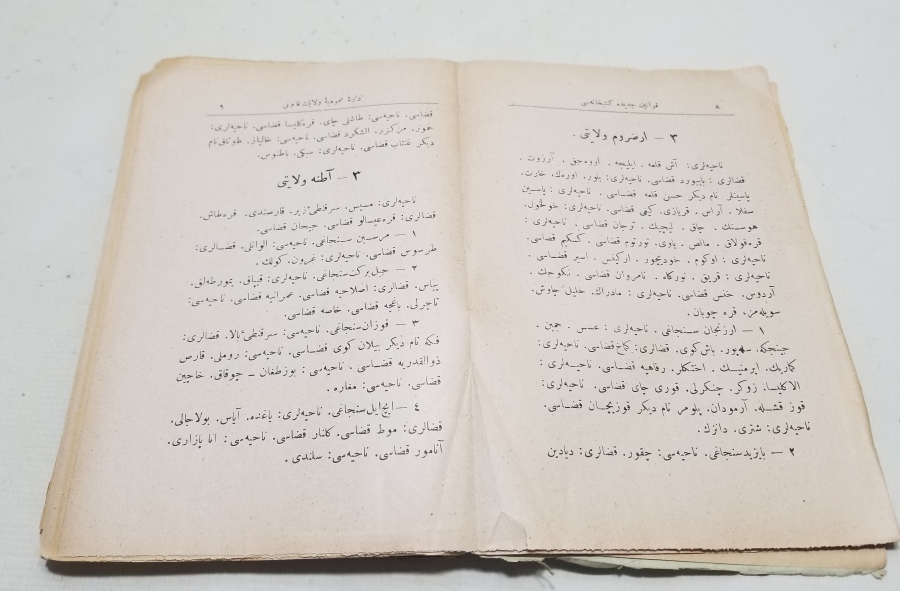 ٨ قوانین جدیده کتبخانه‌سی
٣ – ارضروم ولایتی .
ناحیه‌لری: آش قلعه . ایلیجه . اوه‌جق . آرزوت .
قضالری : بایبورد قضاسی. ناحیه‌لری: بلور. اوره‌ك. خارت.
پاسینلر نام دیکر حسن قلعه قضاسی . ناحیه‌لری : پاسین
سفلا . آراس . قربازی. کیغی قضاسی. ناحیه‌لری: خوخول.
هوسنك . چاق . ترجان قضاسی . ناحیه‌لری :
قره‌قولاق . مانص . یاوی. تورتوم قضاسی . کسکیم قضاسی.
ناحیه‌لری : اوکوم . خودیچور . ارکینس . اسپر قضاسی .
ناحیه‌لری : قریق . نورکاه . نامروان قضاسی .
آردوس. خنس قضاسی. ناحیه‌لری : مادراك. خلیل چاوش.
سویله‌مز. قره چوبان .
١ – ارزنجان سنجاغی . ناحیه‌لری : عسس . جمین .
جنجیکه. سهپور. باش کوی. قضالری: کماخ قضاسی. ناحیه‌لری:
کماریك. ایرمنیك . اختکلر. رفاهیه قضاسی. ناحیه‌لری :
الاکلیسا. زوکر. چنکرلی. قوری چای قضاسی. ناحیه‌لری:
قوز قشله. آرمودان. پلومر نام دیکر قوزیجان قضاسی.
ناحیه‌لری : شتری. دانزك.
٢ – بایزید سنجاغی. ناحیه‌سی: چقور. قضالری: دیادین
اداره عمومیهٔ ولایات قانونی ٩
قضاسی. ناحیه‌سی: طاشلی چای. قره‌کلیسا قضاسی. ناحیه‌لری:
حمور. مرکزور. الشکرد قضاسی. ناحیه‌سی: خالیاز. طوتاق نام
دیکر عنتاب قضاسی. ناحیه‌لری: سبکی. پاطنوس.
٣ – آطنه ولایتی
ناحیه‌لری: مسیس. سرقنطی‌زیر. قارسندی. قره‌طاش.
قضالری: قره‌عیسالو قضاسی. جیحان قضاسی.
١ – مرسین سنجاغی. ناحیه‌سی: الوانلی. قضالری:
طرسوس قضاسی. ناحیه‌لری: نمرون. کولك .
٢ – جبل برکت سنجاغی. ناحیه‌لری: قیپاق. یمورطه‌لق.
پیاس. قضالری: اصلاحیه قضاسی. عمرانیه قضاسی. ناحیه‌سی:
تاچرلی. باغچه قضاسی. خاصه قضاسی.
٣ – قوزان سنجاغی. ناحیه‌سی: سرقنطی‌بالا. قضالری:
فکه نام دیکر بیلان کوی قضاسی. ناحیه‌سی: روملی. قارص
ذوالقدریه قضاسی . ناحیه‌سی : بوزطغان – چوقاق. خاچین
قضاسی. ناحیه‌سی: مغاره .
٤ – ایچ‌ایل سنجاغی. ناحیه‌لری: یاغنده. آیاس. بولاجالی.
قضالری: موط قضاسی. کلنار قضاسی. ناحیه‌سی : انا پازاری.
آنامور قضاسی. ناحیه‌سی: سلندی .